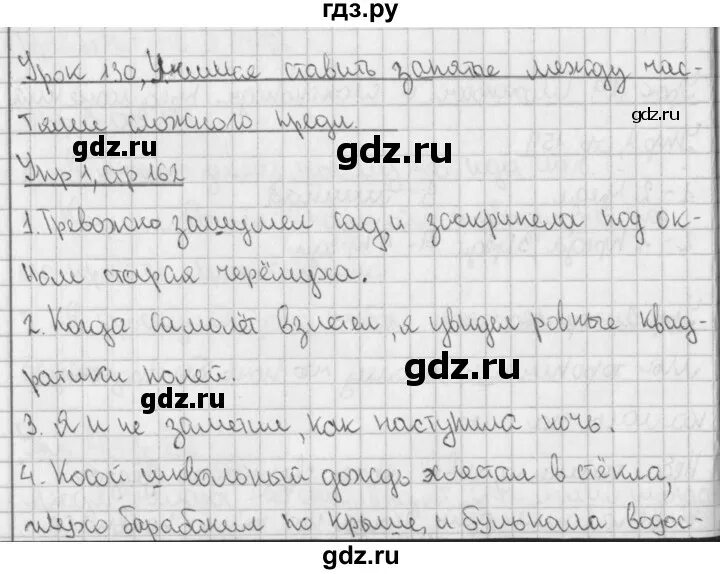 гдз.ру
Урок 130, Учимся ставить запятые между час-
тями сложного предл.
gdz.ru
gdz.ru
Упр 1, стр 162
1. Тревожно зашумел сад, и заскрипела под ок-
ном старая черёмуха.
gdz.ru
2. Когда самолёт взлетел, я увидел ровные квад-
ратики полей.
gdz.ru
gdz.ru
3. Я и не заметил, как наступила ночь.
4. Косой шквальный дождь хлестал в стёкла,
глухо барабанил по крыше, и булькала водос-
gdz.ru
gdz.ru